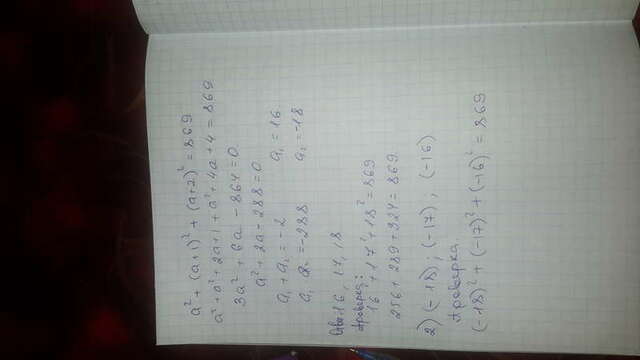 a² + (a+1)² + (a+2)² = 869
a² + a² + 2a + 1 + a² + 4a + 4 = 869
3a² + 6a - 864 = 0
a² + 2a - 288 = 0
a₁ + a₂ = -2 a₁ = 16
a₁ a₂ = -288 a₂ = -18
16, 17, 18
Проверка:
16² + 17² + 18² = 869
256 + 289 + 324 = 869
2) (-18); (-17); (-16)
Проверка
(-18)² + (-17)² + (-16)² = 869